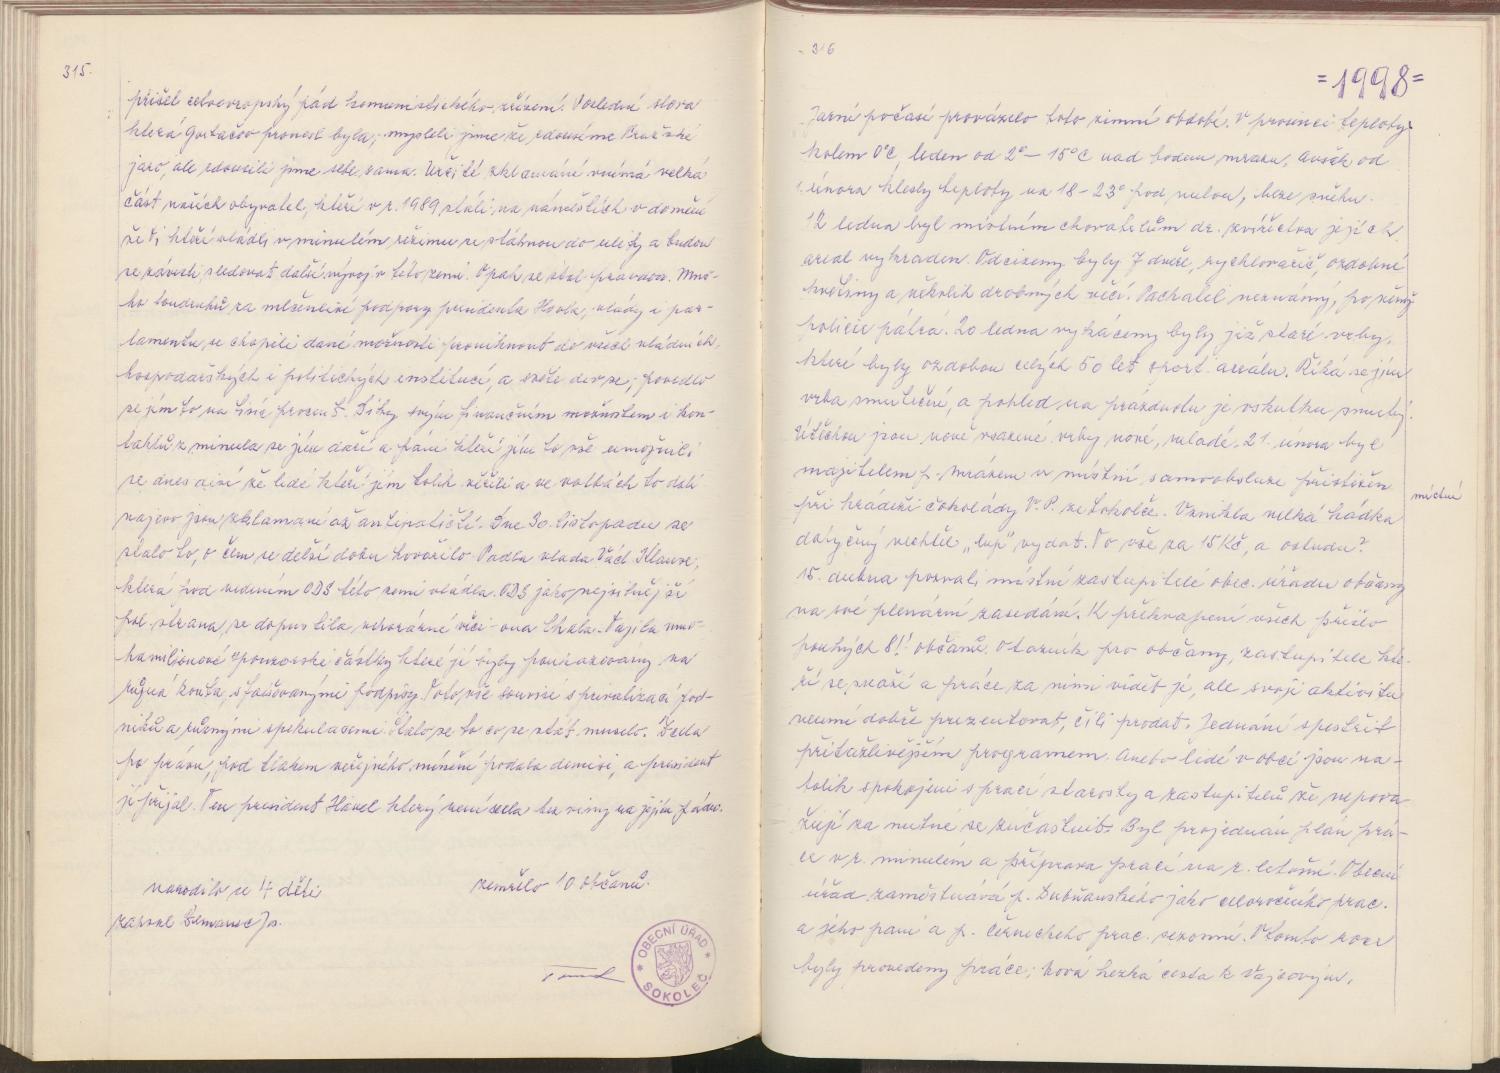 315.
přišel celoevropský pád komunistického zřízení. Poslední slova
která Gorbačov pronesl byla,: mysleli jsme že, zdusíme Pražské
jaro, ale zdusili jsme sebe sama. Určité zklamání vnímá velká
část našich obyvatel, kteří v r. 1989 stáli na náměstích v domění
že ti kteří vládli v minulém režimu se stáhnou do ulity a budou
se závistí sledovat další vývoj v této zemi. Opak se stal pravdou. Mno-
ho soudruhů za mlčenlivé podpory presidenta Havla, vlády i par-
lamentu se chopili dané možnosti proniknout do všech vládních,
hospodářských i politických institucí, a světe div se, povedlo
se jim to na tisíc procent. Díky svým finančním možnostem i kon-
taktů z minula se jim daří a páni kteří jim to vše umožnili
se dnes diví že lidé kteří jim tolik věřili a ve volbách to dali
najevo jsou zklamaní až antipatičtí. Dne 30. listopadu se
stalo to, o čem se delší dobu hovořilo. Padla vláda Václ. Klause,
která pod vedením ODS této zemi vládla. ODS jako nejsilnější
pol. strana, se dopustila nehorázné věci - ona lhala. Tajila mno-
hamiliónové sponzorské částky které jí byly poukazovány na
různá konta, s falšovanými podpisy. Toto vše souvisí s privatizací pod-
niků a různými spekulacemi. Stalo se to co se stát muselo. Zcela
po právu, pod tlakem veřejného mínění podala demisi, a president
ji přijal. Ten president Havel který není zcela bez viny na jejím pádu.
narodilo se 4 děti zemřelo 10 občanů.
zapsal Jos.
OBECNÍ ÚŘAD
SOKOLEČ
316
=1998=
Jarní počasí provázelo toto zimní období. V prosinci teploty
kolem 0°C, leden od 2° - 15°C nad bodem mrazu, avšak od
1. února klesly teploty na 18 - 23° pod nulou, beze sněhu.
12 ledna byl místním chovatelům dr. zvířectva jejich
areal vykraden. Odcizeny byly 7 dveře, rychlovařič, ozdobné
květiny a několik drobných věcí. Pachatel neznámý, po němž
policie pátrá. 20 ledna vykáceny byly již staré vrby,
které byly ozdobou celých 50 let sport. areálu. Říká se jim
vrba smuteční, a pohled na prázdnotu je vskutku smutný.
Útěchou jsou nově vsazené vrby nové, mladé. 21. února byl
majitelem p. Mrázem v místní samoobsluze přistižen
při krádeži čokolády V. P. ze Sokolče. Vznikla velká hádka
místní
dotyčný nechtěl „lup" vydat. To vše za 15 Kč, a ostudu?
15. dubna pozvali místní zastupitelé obec. úřadu občany
na své plenární zasedání. K překvapení všech přišlo
pouhých 8!! občanů. Otazník pro občany, zastupitele kte-
ří se snaží a práce za nimi vidět je, ale svoji aktivitu
neumí dobře prezentovat, čili prodat. Jednání zpestřit
přitažlivějším programem. Anebo lidé v obci jsou na-
tolik spokojeni s prací starosty a zastupitelů že nepova
žují za nutné se zúčastnit. Byl projednán plán prá-
ce v r. minulém a příprava prací na r. letošní. Obecní
úřad zaměstnává p. Dubňanského jako celoročního prac.
a jeho paní a p. Černeckého prac. sezonní. V tomto roce
byly provedeny práce; nová hezká cesta k Vajcovým,